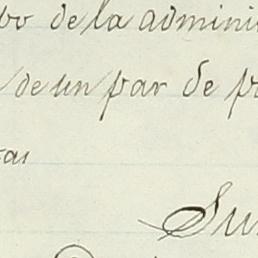 bo de la admini
de un par de p
as
Su